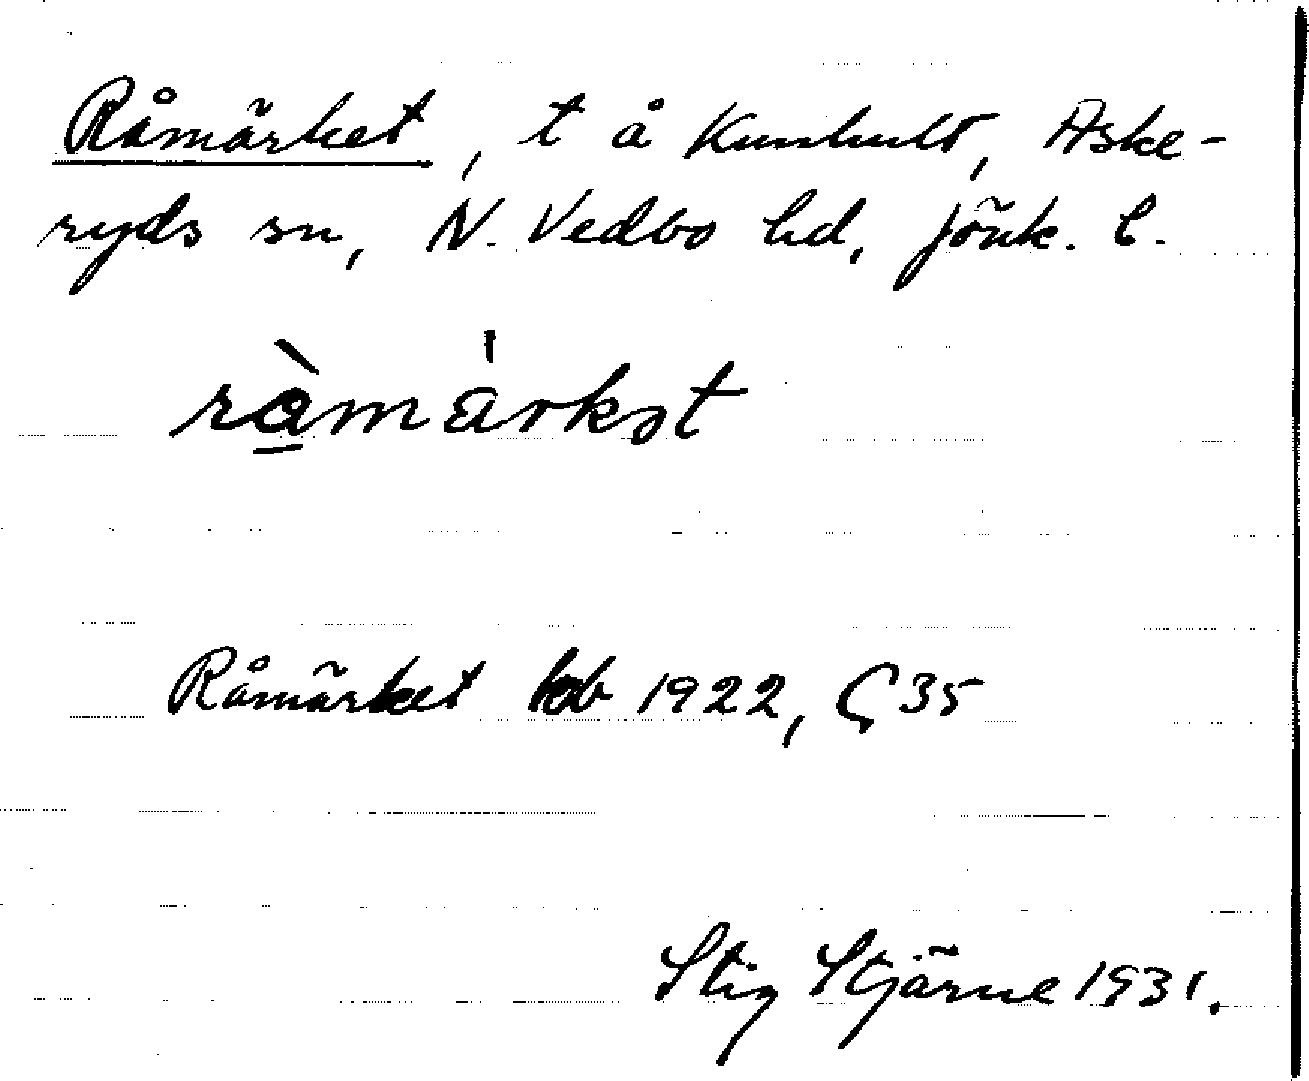 Råmärket, t å Kunhult, Aske-
ryds sn, N. Vedbo hd, Jönk. l.
ràmárkət
Råmärket hb 1922, G 35
Stig Stjärne 1931.